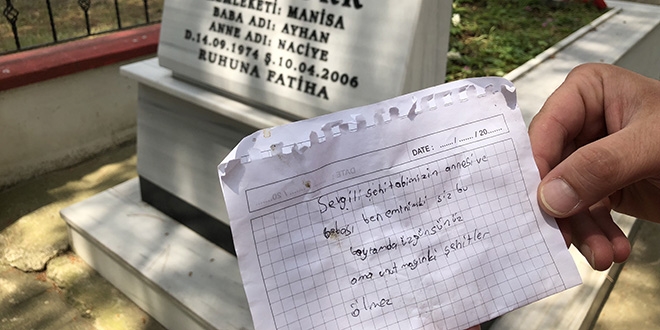 MEMLEKETİ: MANİSA
BABA ADI: AYHAN
ANNE ADI: NACİYE
D.14.09.1974 Ş.10.04.2006
RUHUNA FATİHA
DATE : ....... / ....... / 20.......
Sevgili şehitabimizin annesi ve
babası ben eminimki siz bu
bayramda üzgünsünüz
ama unutmayınki şehitler
ölmez